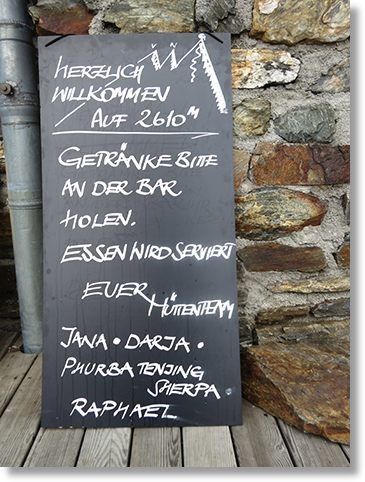 HERZLICH
WILLKOMMEN
AUF 2610M
GETRÄNKE BITTE
AN DER BAR
HOLEN.
ESSEN WIRD SERVIERT
EUER HÜTTENTEAM
JANA • DARJA •
PHURBA TENJING
SHERPA
RAPHAEL